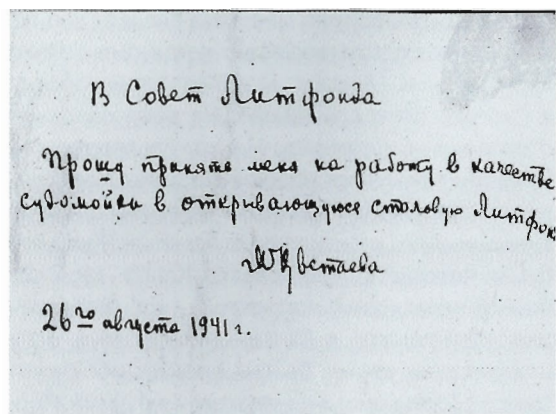 В Совет Литфонда
Прошу принять меня на работу в качестве
судомойки в открывающуюся столовую Литфон
МЦветаева
26го августа 1941 г.